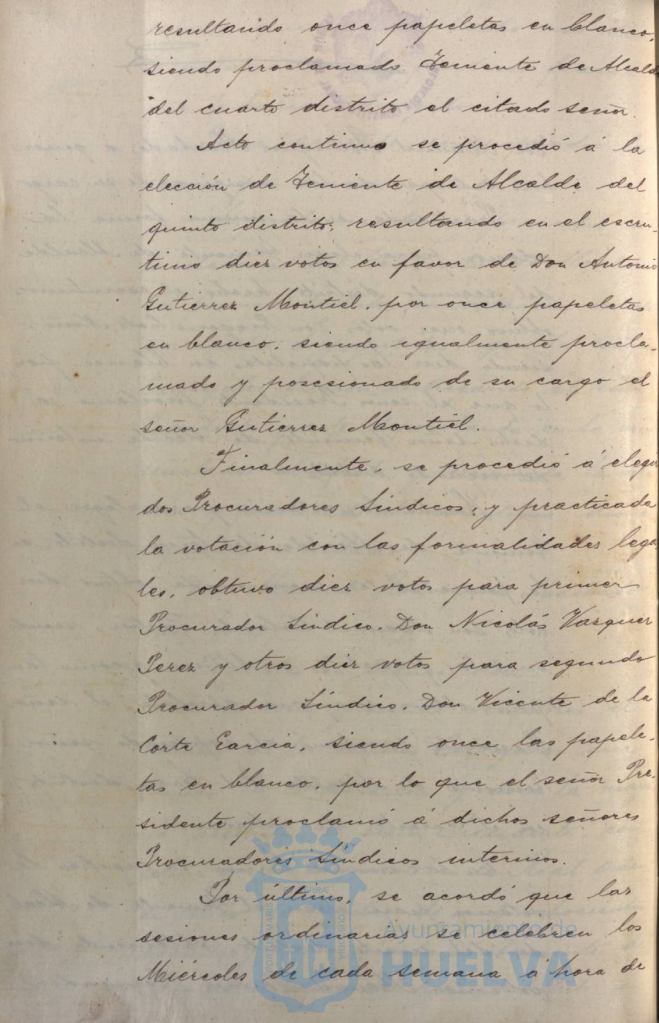 resultando once papeletas en blanco,
siendo proclamado Teniente de Alcalde
del cuarto distrito el citado señor.
Acto continuo se procedió á la
elección de Teniente de Alcalde del
quinto distrito, resultando en el escru-
tinio diez votos en favor de Don Antonio
Gutierrez Montiel, por once papeletas
en blanco, siendo igualmente procla-
mado y posesionado de su cargo el
señor Gutierrez Montiel.
Finalmente, se procedió á elegir
dos Procuradores Síndicos, y practicada
la votación con las formalidades lega-
les, obtuvo diez votos para primer
Procurador Síndico, Don Nicolás Vazquez
Perez y otros diez votos para segundo
Procurador Síndico, Don Vicente de la
Corte Garcia, siendo once las papele-
tas en blanco, por lo que el señor Pre-
sidente proclamó á dichos señores
Procuradores Síndicos interinos.
Por último, se acordó que las
sesiones ordinarias se celebren los
Miércoles de cada semana á hora de
Ayuntamiento de
HUELVA